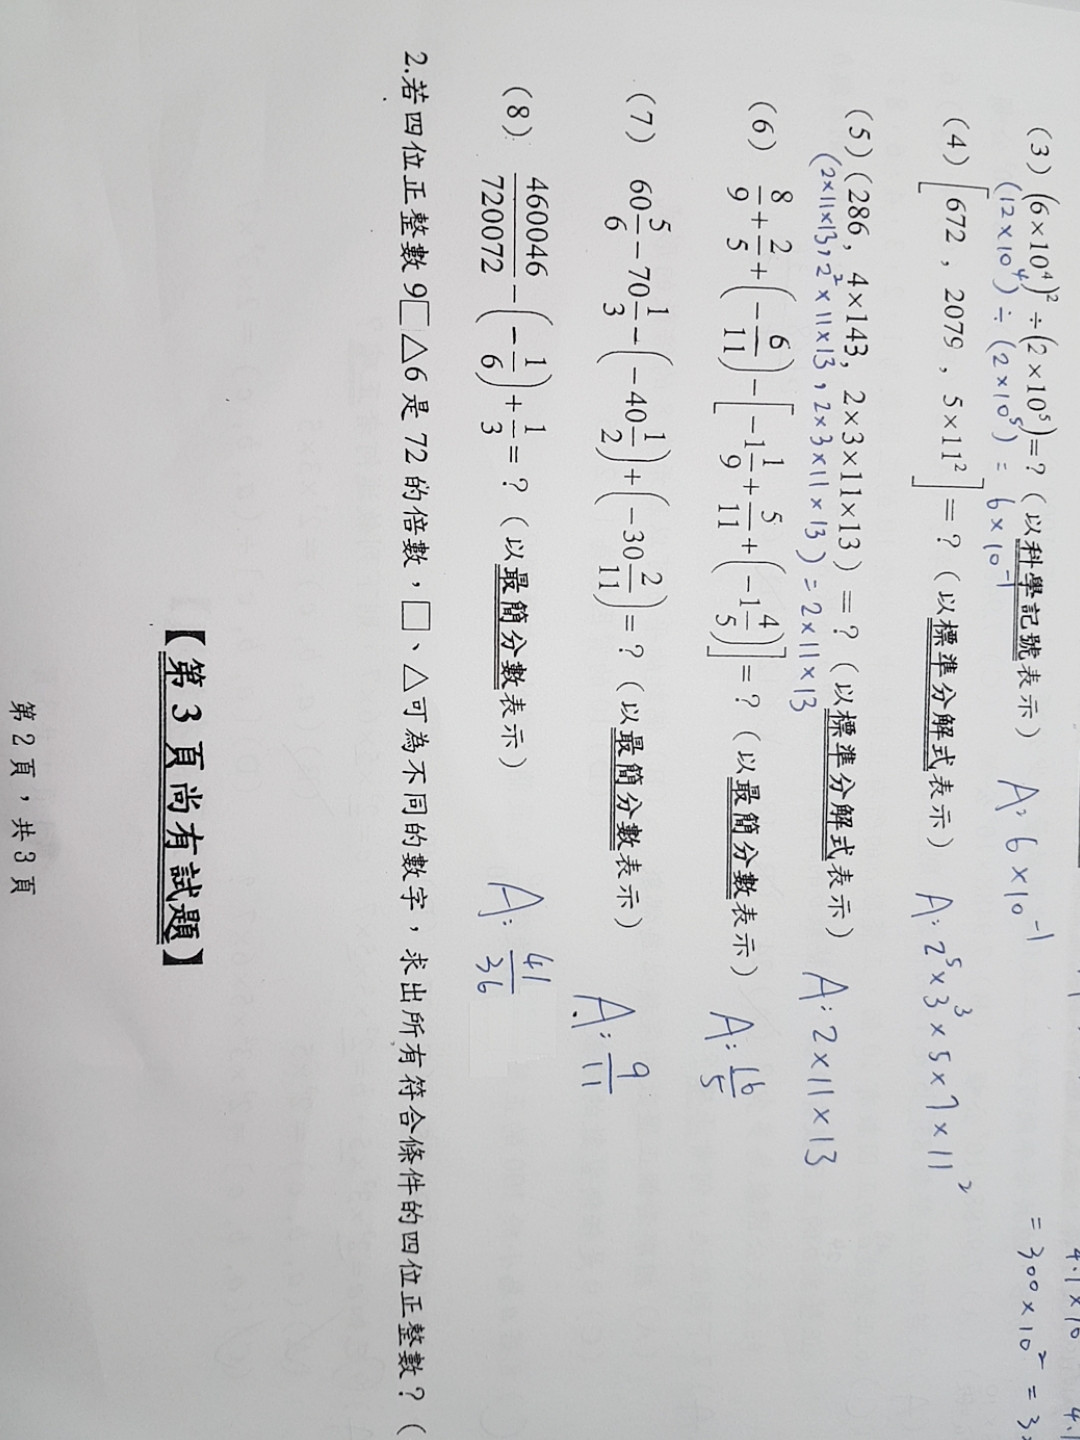 4.1×10
4.1
(3) (6×10⁴)²÷(2×10⁵)=?(以科學記號表示) A: 6×10⁻¹
= 300×10² = 3×
(12×10⁴)÷(2×10⁵) = 6×10⁻¹
(4) [672,2079,5×11²]=?(以標準分解式表示) A: 2⁵×3³×5×7×11²
(5)(286,4×143,2×3×11×13)=?(以標準分解式表示) A: 2×11×13
(2×11×13, 2²×11×13, 2×3×11×13) = 2×11×13
(6) 8/9+2/5+(-6/11)-[-1 1/9+5/11+(-1 4/5)]=?(以最簡分數表示) A: 16/5
(7) 60 5/6-70 1/3-(-40 1/2)+(-30 2/11)=?(以最簡分數表示) A: 9/11
(8) 460046/720072-(-1/6)+1/3=?(以最簡分數表示) A: 41/36
2.若四位正整數9□△6是72的倍數,□、△可為不同的數字,求出所有符合條件的四位正整數?(
【第3頁尚有試題】
第2頁,共3頁